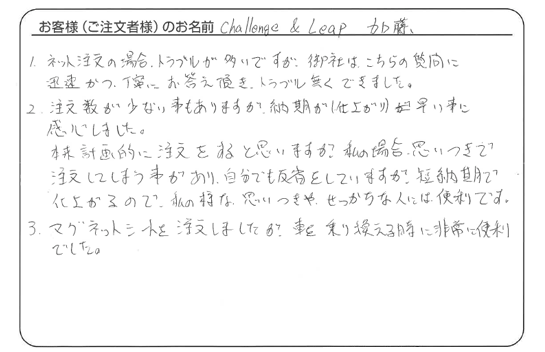 お客様(ご注文者様)のお名前 Challenge & Leap 加藤、
1. ネット注文の場合、トラブルが多いですが、御社は、こちらの質問に
迅速かつ、丁寧にお答え頂き、トラブル無くできました。
2. 注文数が少ない事もありますが、納期が(仕上がり)が早い事に
感心しました。
計画的に注文をすると思いますが、私の場合、思いつきで
注文してしまう事があり、自分でも反省をしていますが、短納期で
仕上がるので、私の様な、思いつきや、せっかちな人には便利です。
3. マグネットシートを注文しましたが、車を乗り換える時に非常に便利
でした。